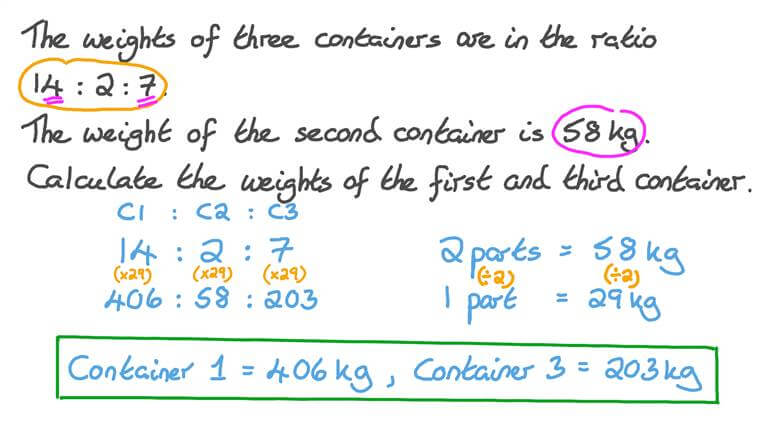 The weights of three containers are in the ratio
14 : 2 : 7.
The weight of the second container is 58 kg.
Calculate the weights of the first and third container.
C1 : C2 : C3
14 : 2 : 7
(×29) (×29) (×29)
406 : 58 : 203
2 parts = 58 kg
(÷2) (÷2)
1 part = 29 kg
Container 1 = 406 kg , Container 3 = 203 kg